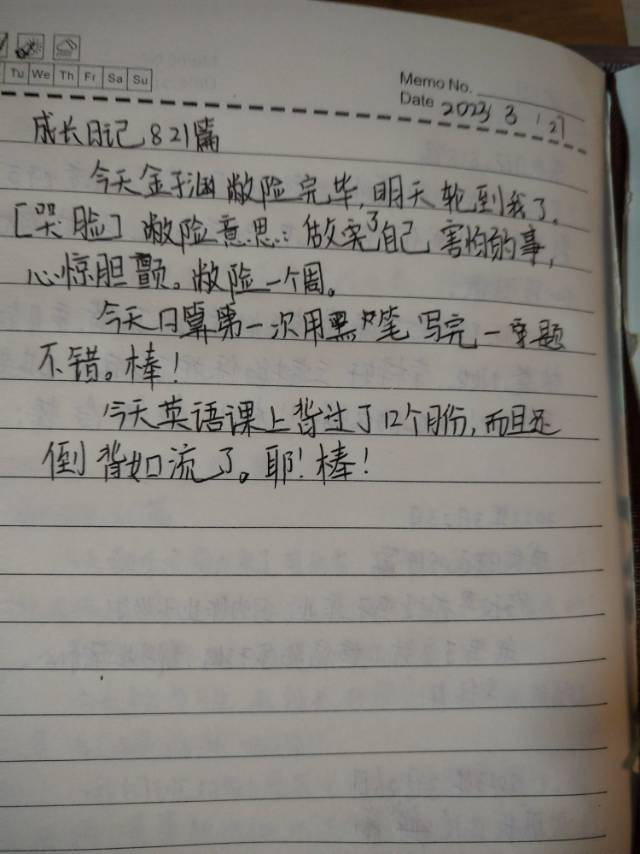 Tu We Th Fr Sa Su
Memo No.
Date 2023 3 27
成长日记821篇
今天金子涵敝险完毕,明天轮到我了。
[哭脸]敝险意思:做完了自己害怕的事,
心惊胆颤。敝险一个周。
今天口算第一次用黑 笔写完一 题
不错。棒!
今天英语课上背过了12个月份,而且还
倒背如流了。耶!棒!